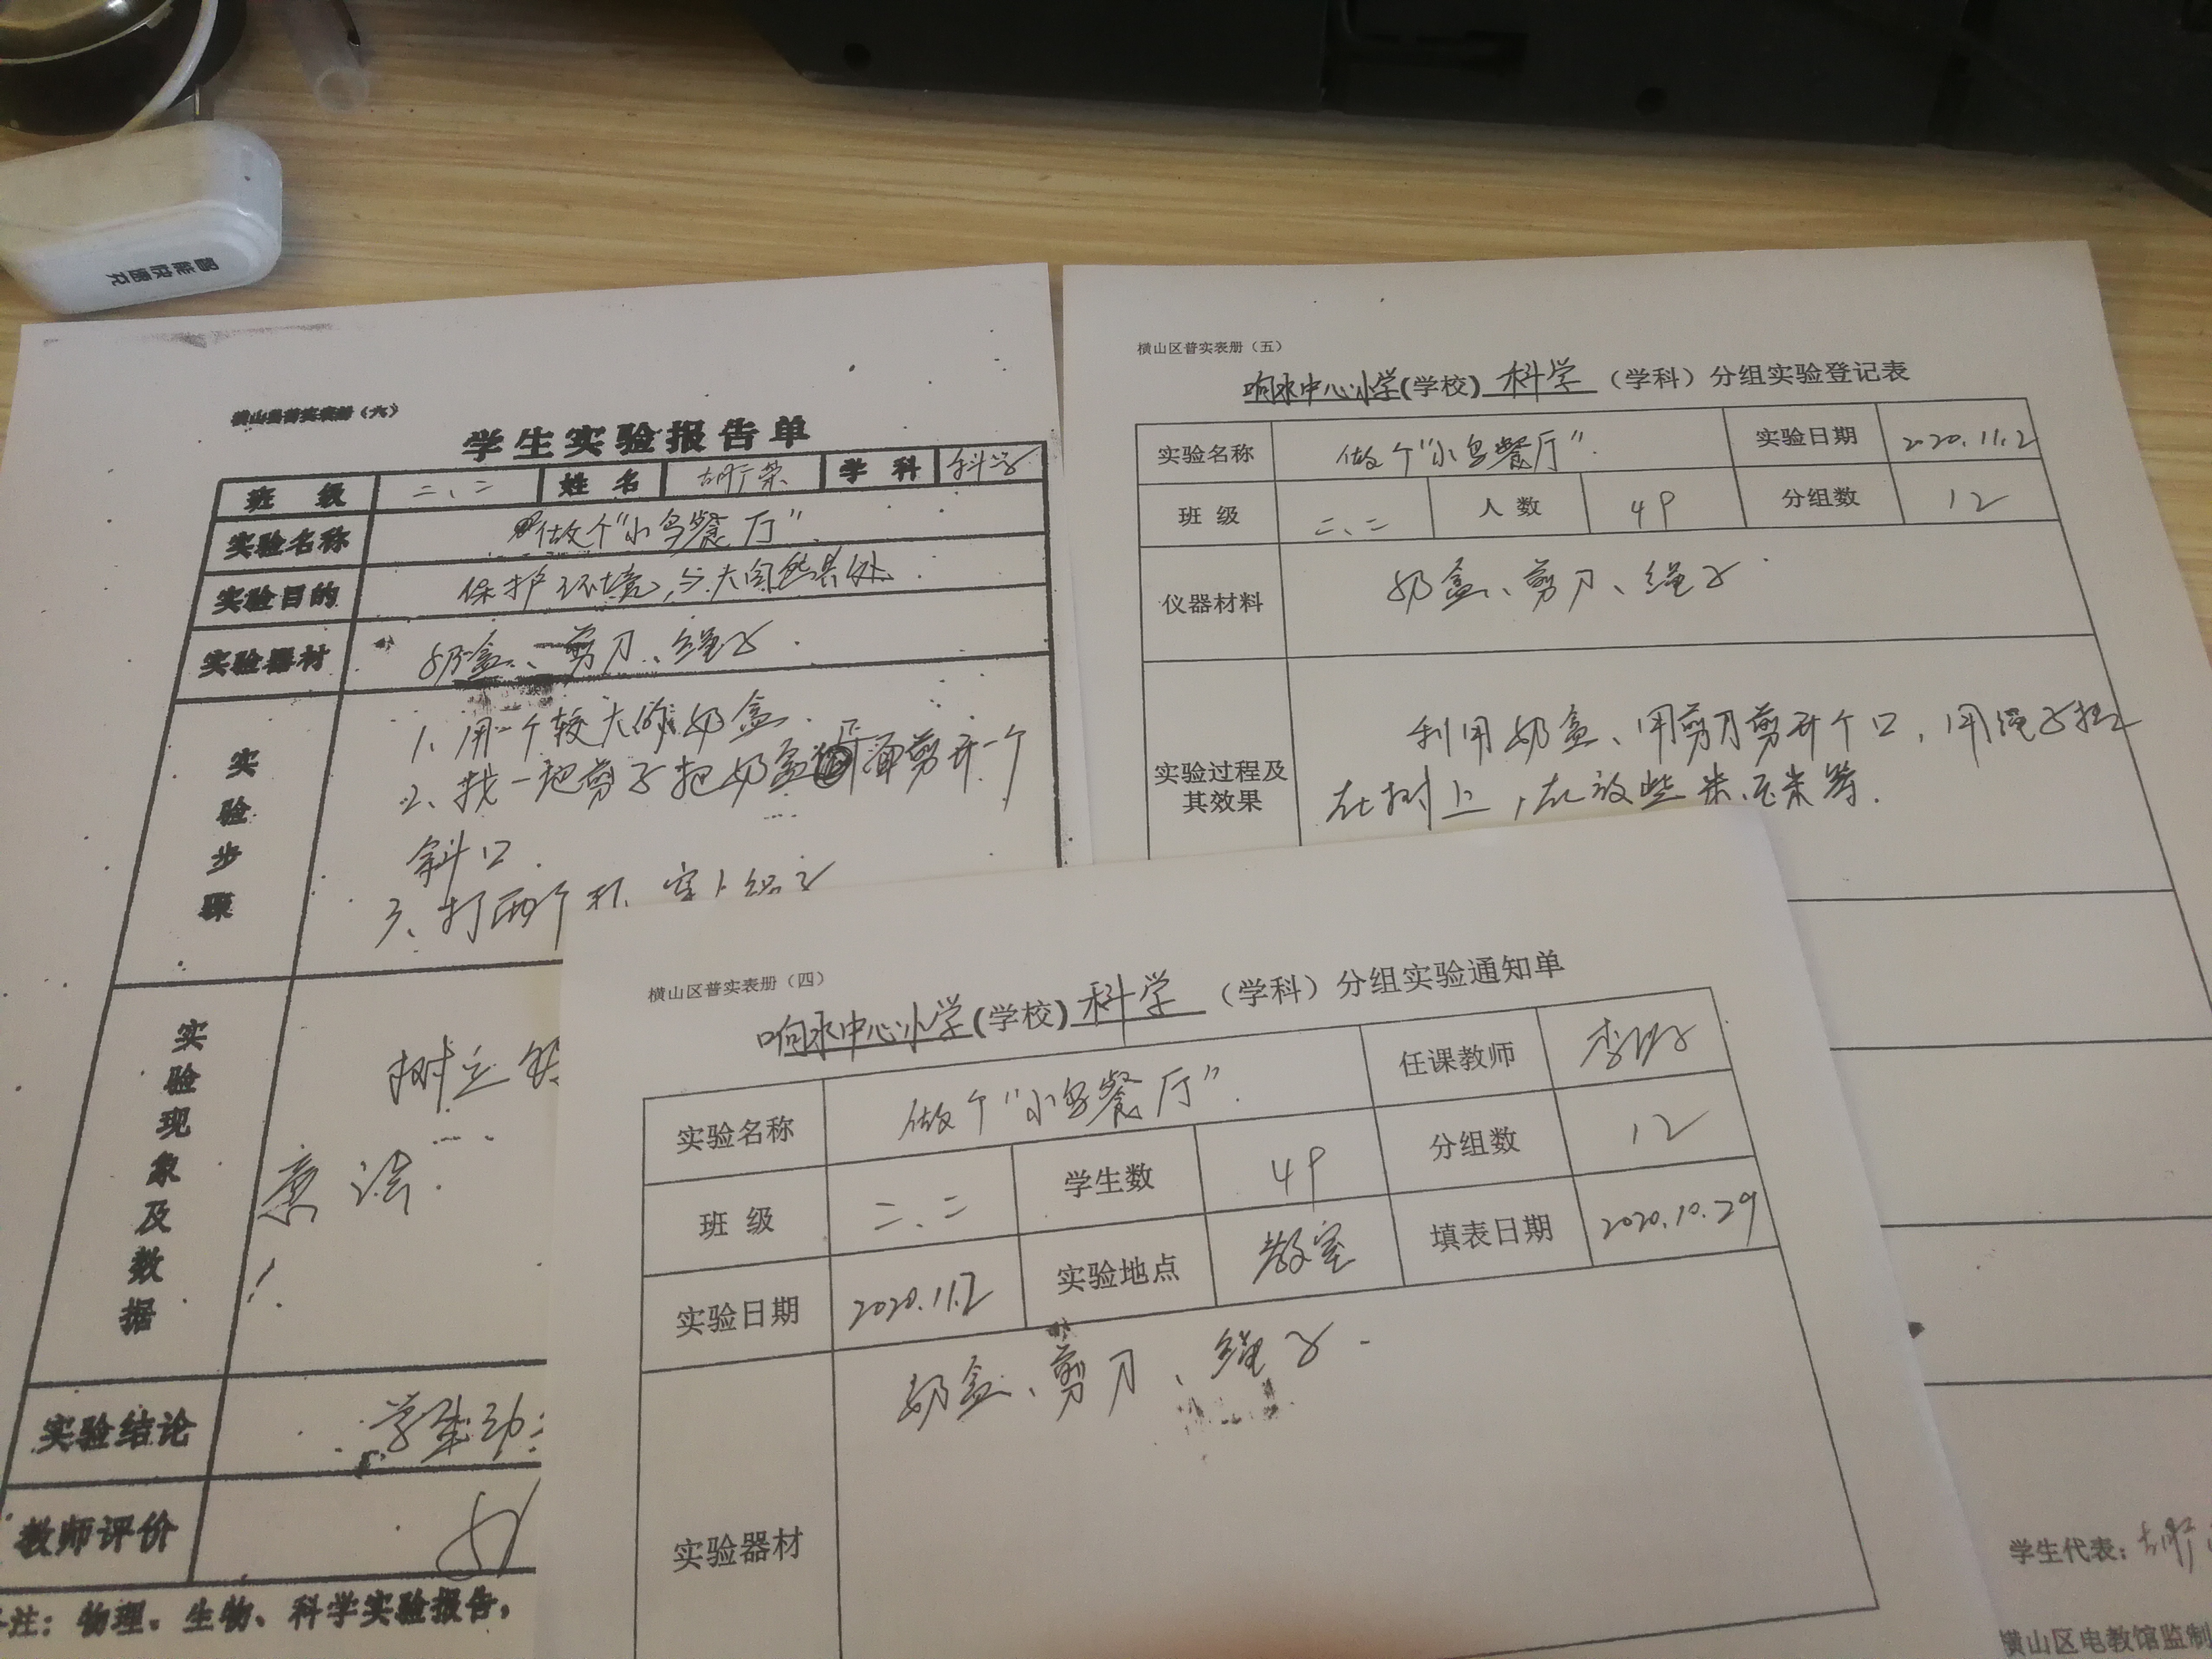 智能快速充
横山县普实表册（六）
学生实验报告单
班 级 二、二 姓 名 胡行荣 学 科 科学
实验名称 做个“小鸟餐厅”.
实验目的 保护环境,与大自然共处.
实验器材 奶盒、剪刀、绳子.
实验步骤
1、用一个较大的奶盒.
2、找一把剪子把奶盒 面剪开一个
斜口.
3、打两个孔
实验现象及数据
树立
意识.
实验结论 学生动
教师评价
注：物理、生物、科学实验报告，
横山区普实表册（五）
响水中心小学(学校) 科学 （学科）分组实验登记表
实验名称 做个“小鸟餐厅”. 实验日期 2020.11.2
班 级 二、二 人 数 49 分组数 12
仪器材料 奶盒、剪刀、绳子.
实验过程及其效果
利用奶盒、用剪刀剪开个口，用绳子挂
在树上，在放些米、玉米等.
学生代表：胡行
横山区电教馆监制
横山区普实表册（四）
响水中心小学(学校) 科学 （学科）分组实验通知单
实验名称 做个“小鸟餐厅”. 任课教师 李
班 级 二、二 学生数 49 分组数 12
实验日期 2020.11.2 实验地点 教室 填表日期 2020.10.29
实验器材 奶盒、剪刀、绳子.